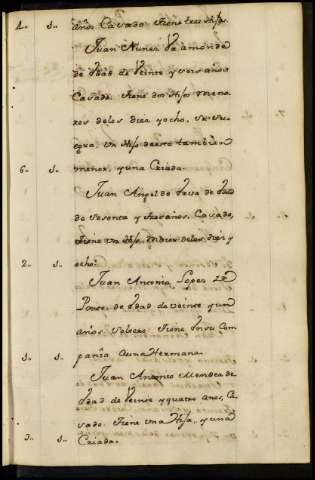 4. 3. años Casado tiene tres Hijos.
Juan Nuñez Vaamonde
de Edad de Veinte y seis años
Casado. tiene dos Hijos meno-
res de los diez y ocho, su Sue-
gra, Un Hijo de este tambien
6. 3. menor, y una Criada.
Juan Angel de de Edad
de Sesenta y tres años, Casado,
tiene un Hijo menor de los diez y
2. 3. ocho.
Juan Antonio Lopez de
Ponte, de Edad de veinte y un
años Soltero. tiene en su Com-
3. 3. pañia a una Hermana.
Juan Antonio Mendez de
Edad de Veinte y quatro anos, Ca-
sado. tiene una Hija, y una
3. 3. Criada.